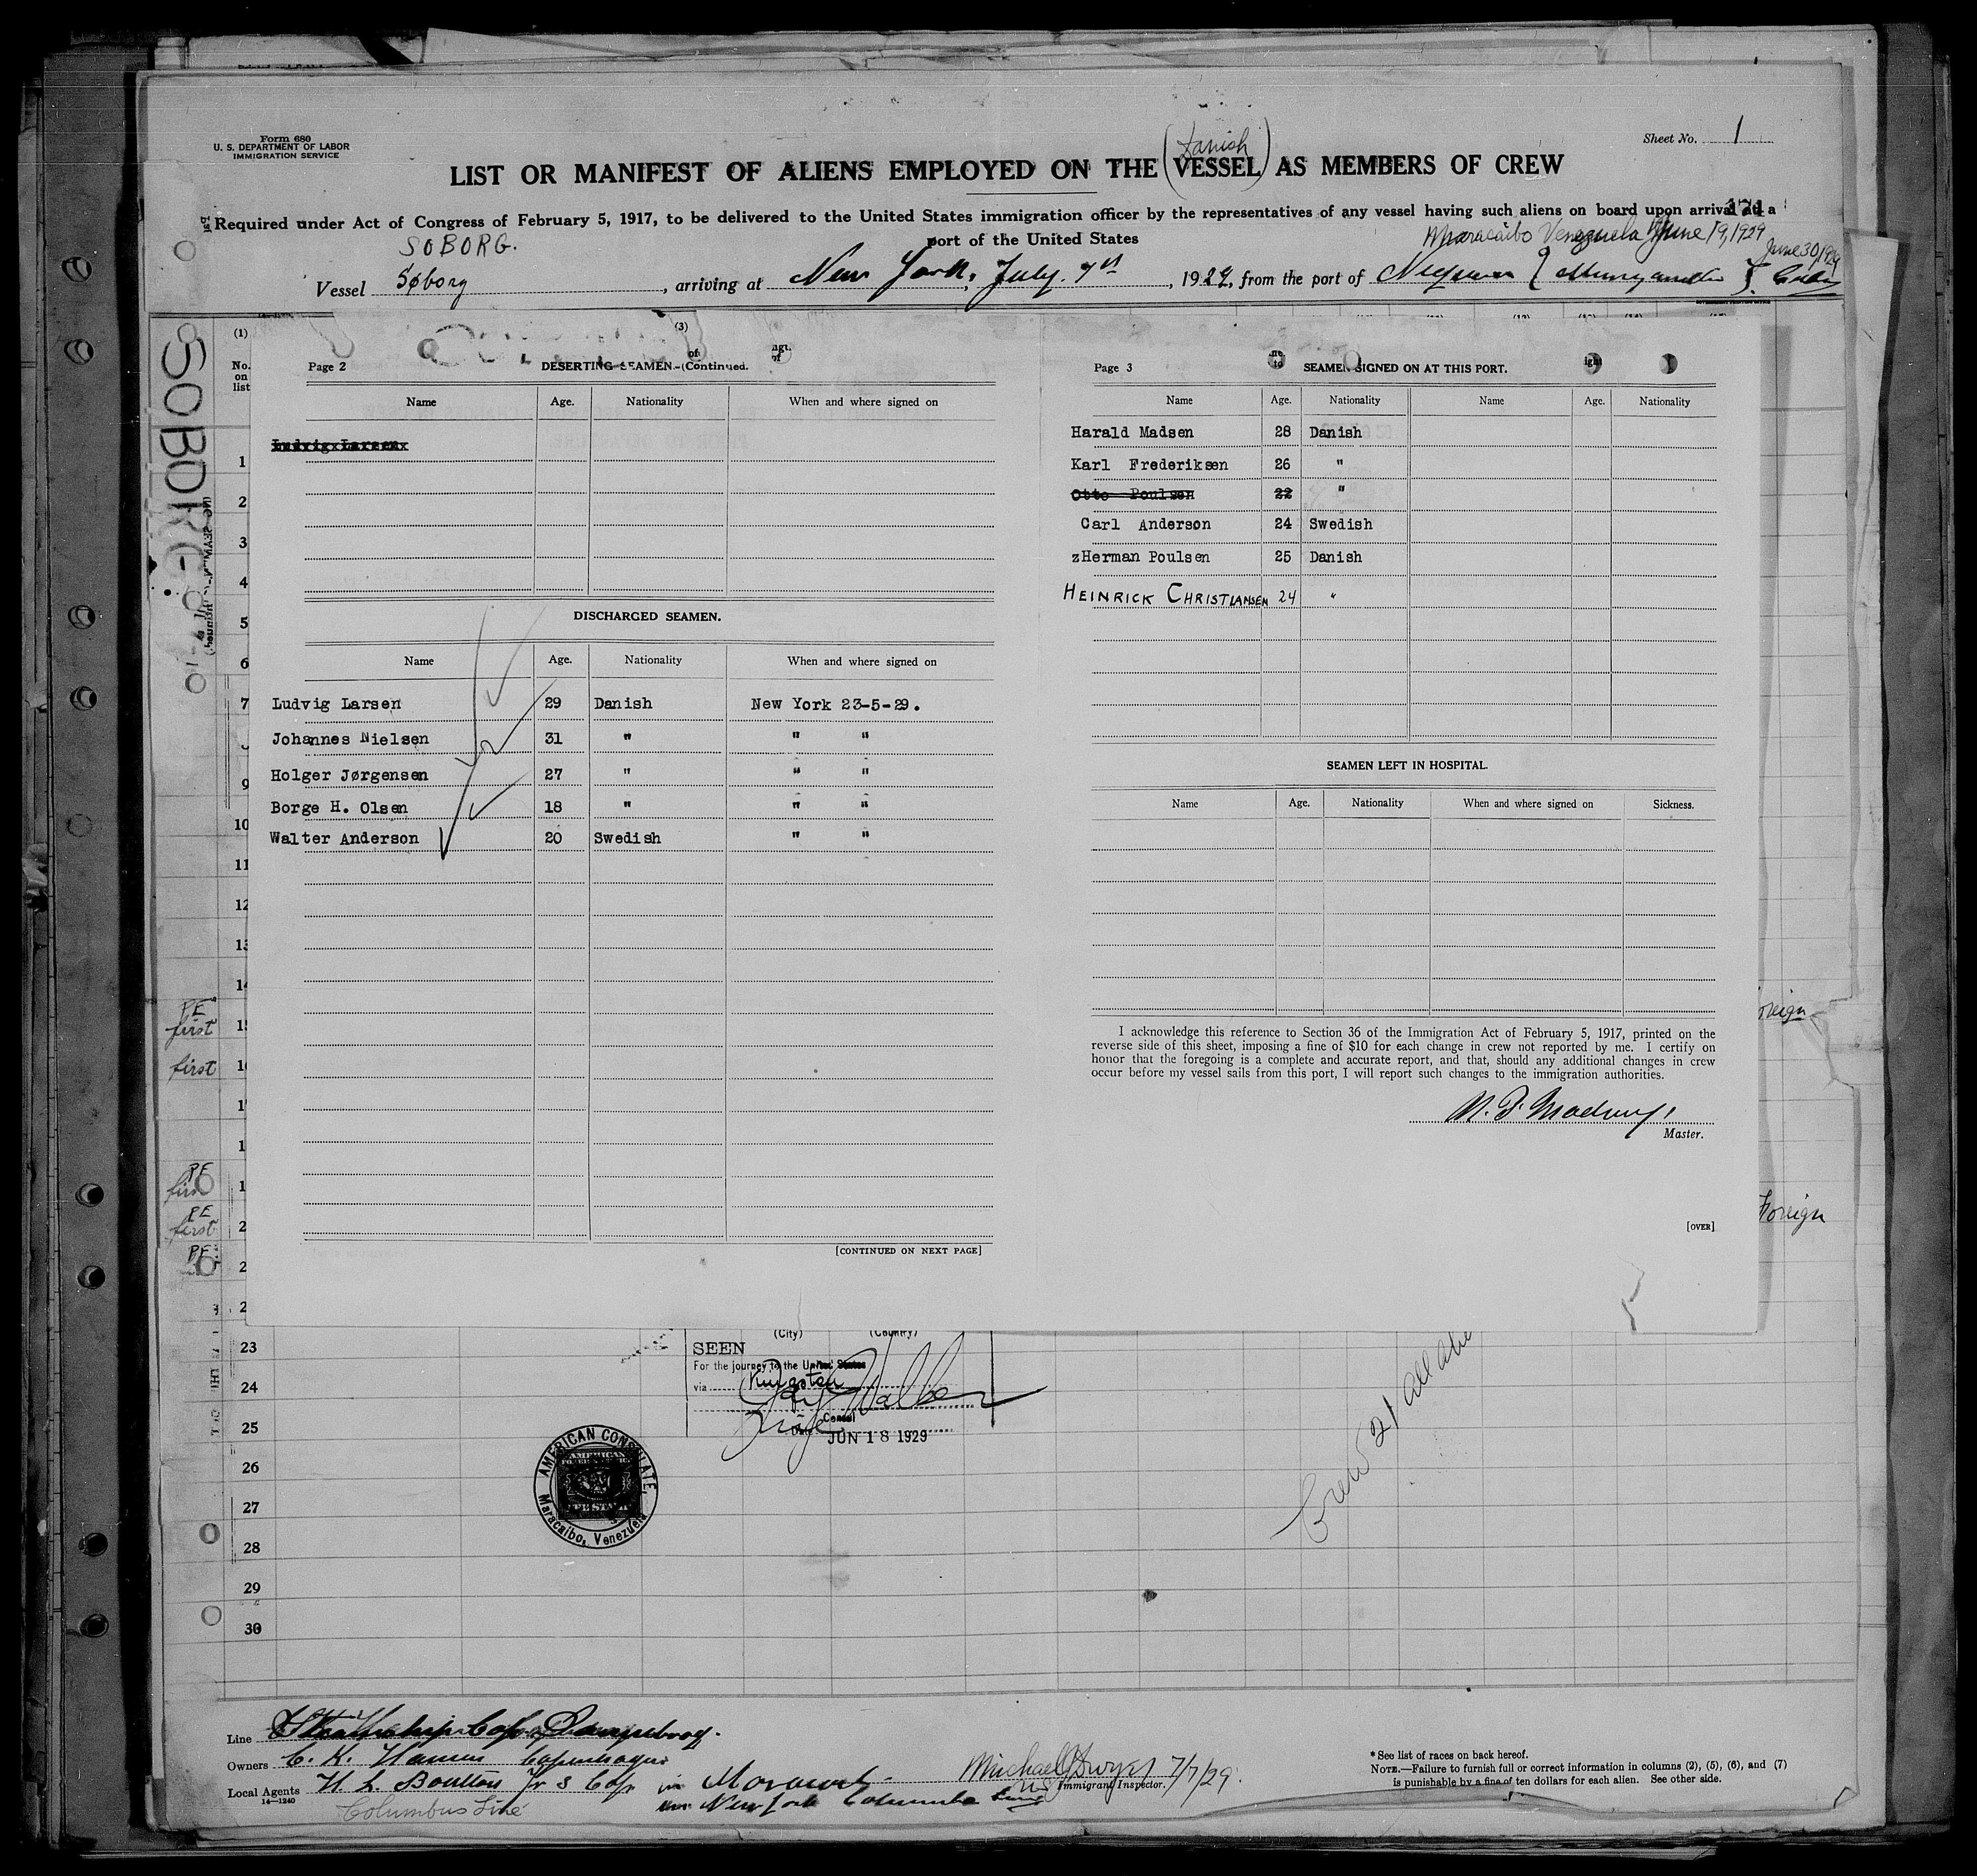 Form 680
U. S. DEPARTMENT OF LABOR
IMMIGRATION SERVICE
Sheet No. 1
(Danish)
LIST OR MANIFEST OF ALIENS EMPLOYED ON THE VESSEL AS MEMBERS OF CREW
Required under Act of Congress of February 5, 1917, to be delivered to the United States immigration officer by the representatives of any vessel having such aliens on board upon arrival at a
port of the United States
SOBORG.
Maracaibo Venezuela June 19, 1929
June 30/1929
Vessel Søborg, arriving at New York, July 7th, 1929, from the port of
SOBORG
(1) (3)
No. on list
Page 2 DESERTING SEAMEN.-(Continued.
Name Age. Nationality When and where signed on
Ludvig Larsen
DISCHARGED SEAMEN.
Name Age. Nationality When and where signed on
Ludvig Larsen 29 Danish New York 23-5-29.
Johannes Nielsen 31 " " "
Holger Jørgensen 27 " " "
Borge H. Olsen 18 " " "
Walter Anderson 20 Swedish " "
[CONTINUED ON NEXT PAGE]
Page 3 SEAMEN SIGNED ON AT THIS PORT.
Name Age. Nationality Name Age. Nationality
Harald Madsen 28 Danish
Karl Frederiksen 26 "
Otto Poulsen 22 "
Carl Anderson 24 Swedish
zHerman Poulsen 25 Danish
HEINRICK CHRISTIANSEN 24 "
SEAMEN LEFT IN HOSPITAL.
Name Age. Nationality When and where signed on Sickness.
I acknowledge this reference to Section 36 of the Immigration Act of February 5, 1917, printed on the
reverse side of this sheet, imposing a fine of $10 for each change in crew not reported by me. I certify on
honor that the foregoing is a complete and accurate report, and that, should any additional changes in crew
occur before my vessel sails from this port, I will report such changes to the immigration authorities.
Master.
[OVER]
1
2
3
4
5
6
7
9
10
11
12
13
14
PE
first
first
PE
PE
first
PE
Foreign
23
24
25
26
27
28
29
30
(City) (Country)
SEEN
For the journey to the United States
via Kingston
Consul
JUN 18 1929
AMERICAN CONSULATE,
Maracaibo, Venezuela
Crew 21 all
Line
Owners C. K. Hansen Copenhagen
Local Agents H. L. Boulton Jr & Co in
14—1240
Columbus Line
in New York Columbus Line
Michael J Dwyer 7/7/29.
Immigrant Inspector.
* See list of races on back hereof.
NOTE.—Failure to furnish full or correct information in columns (2), (5), (6), and (7)
is punishable by a fine of ten dollars for each alien. See other side.